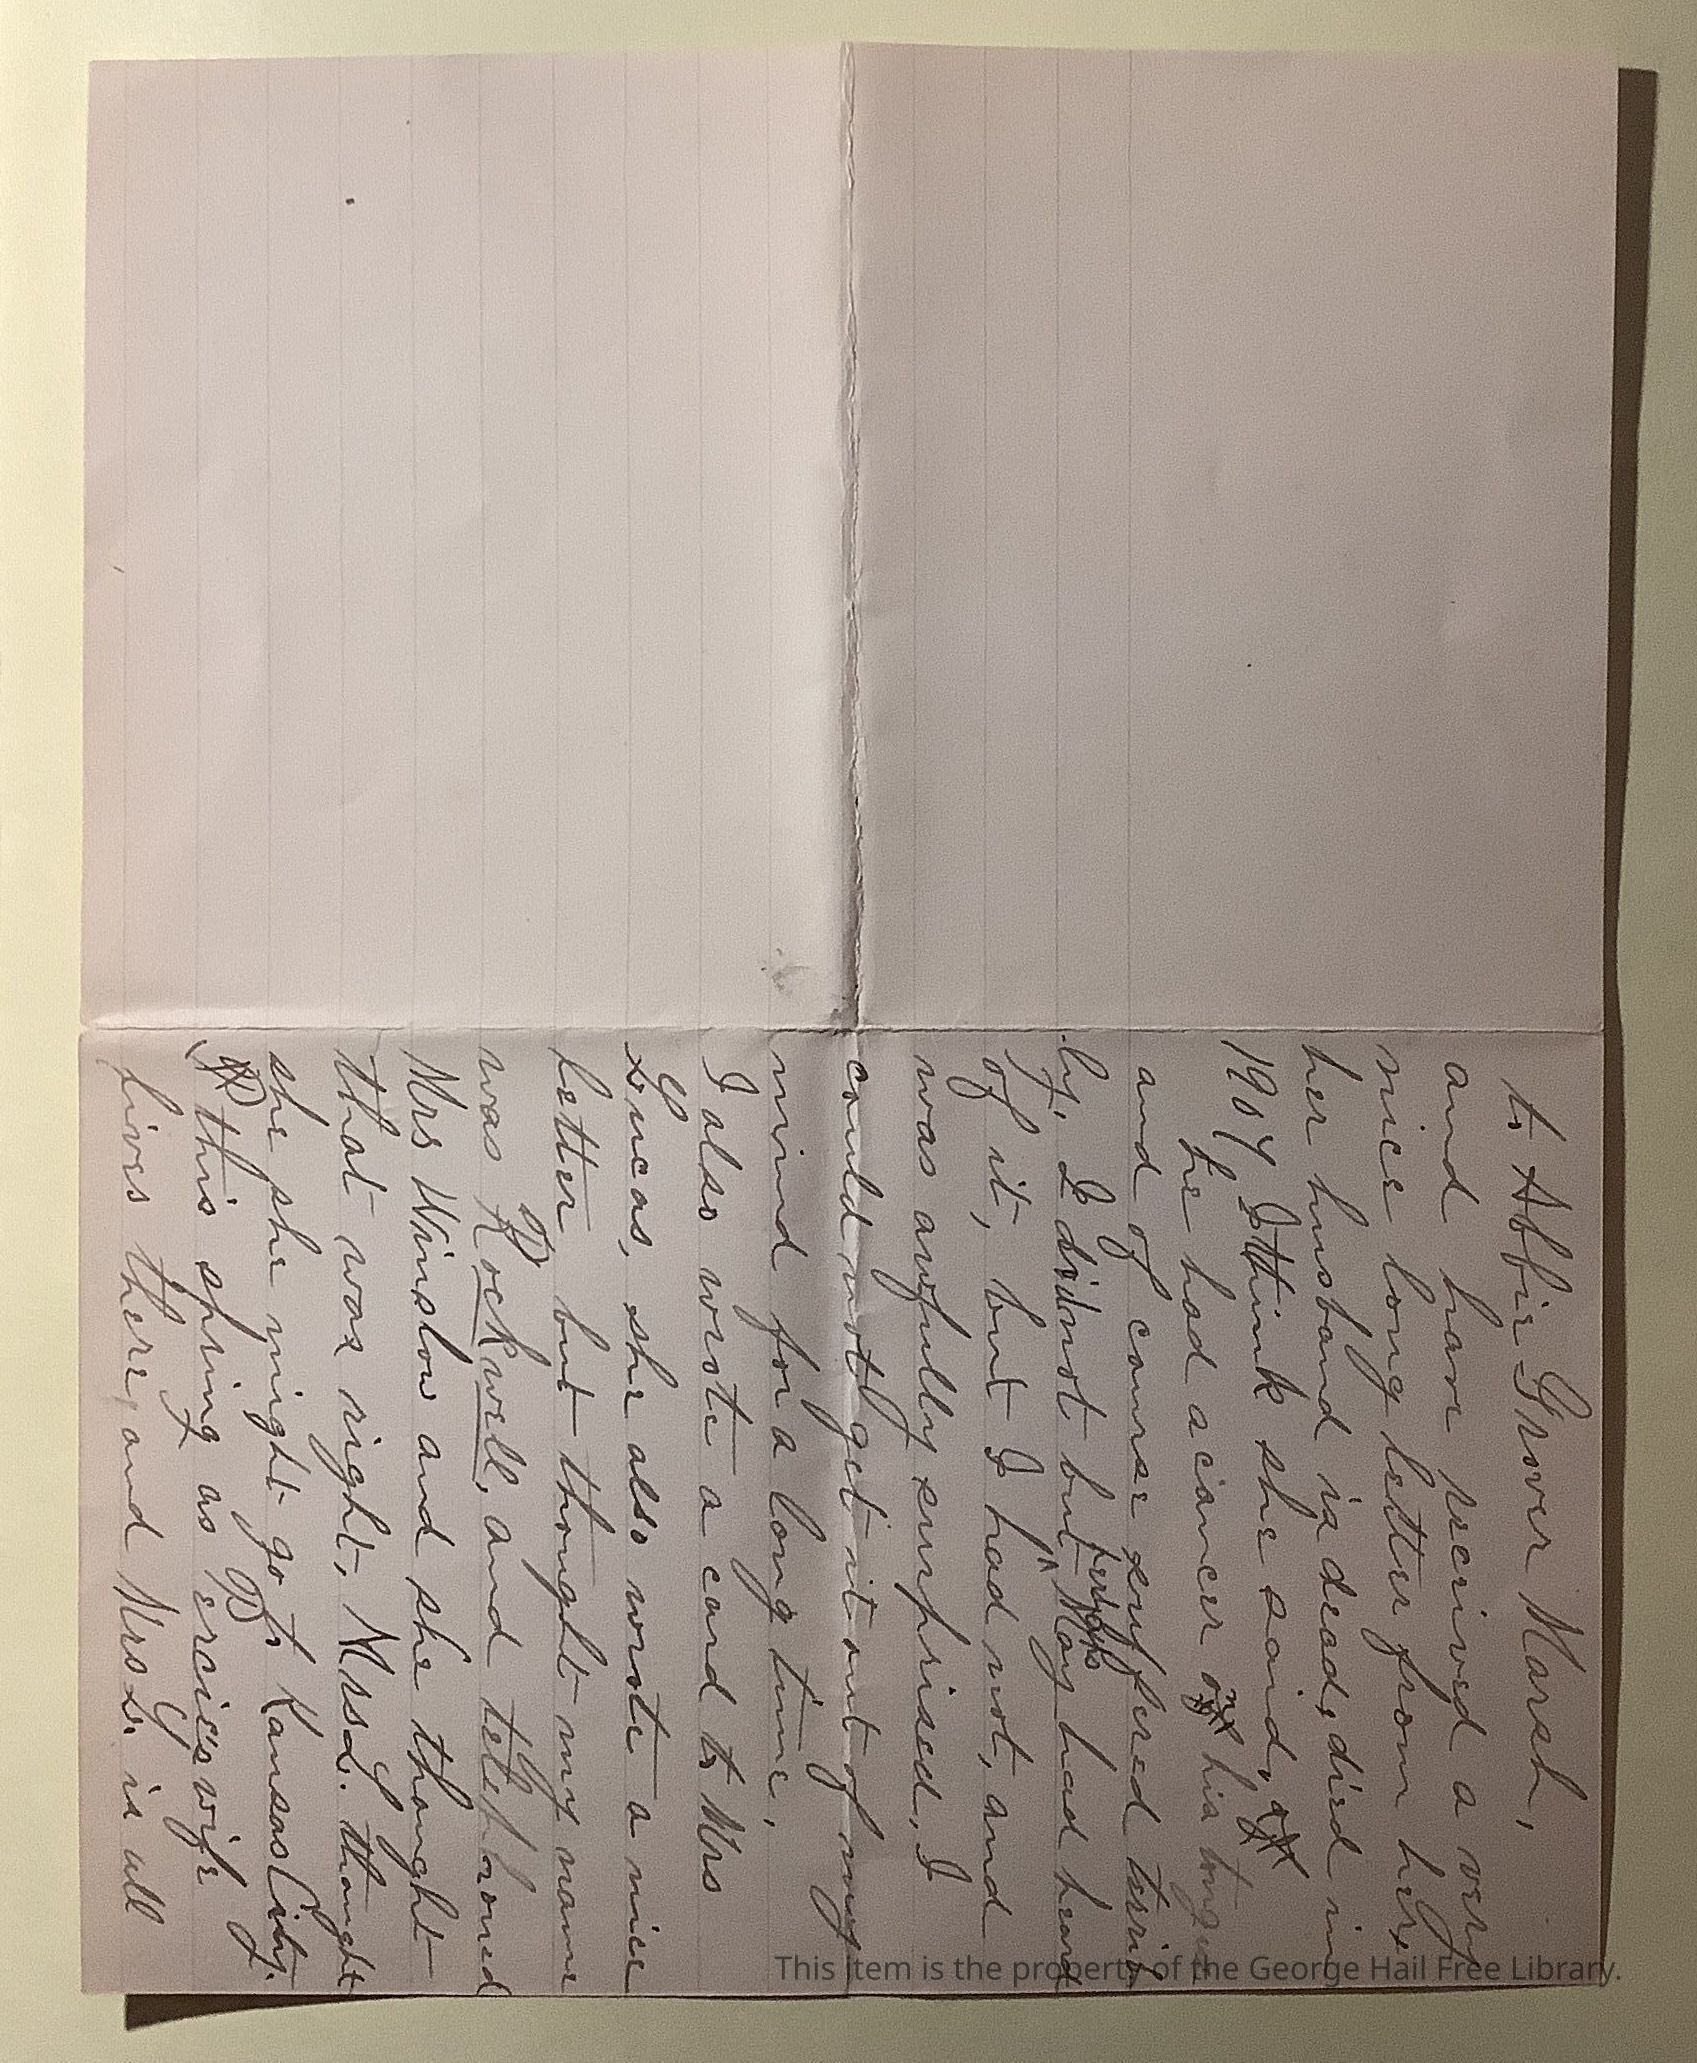 to Abbie Grover Marsh,
and have received a very
nice long letter from her
her husband is dead, died in
1907, I think she said,
he had a cancer on his tongue
and of course suffered terrib
ly, I did not but perhaps May had heard
of it, but I had not, and
was awfully surprised, I
could not get it out of my
mind for a long time,
I also wrote a card to Mrs
Lucas, she also wrote a nice
letter but thought my name
was Rockwell, and telephoned
Mrs Winslow and she thought
that was right, Mrs L. thought
she she might go to Kansas City.
this spring as Percie's wife
lives there, and Mrs L. is all
This item is the property of the George Hail Free Library.